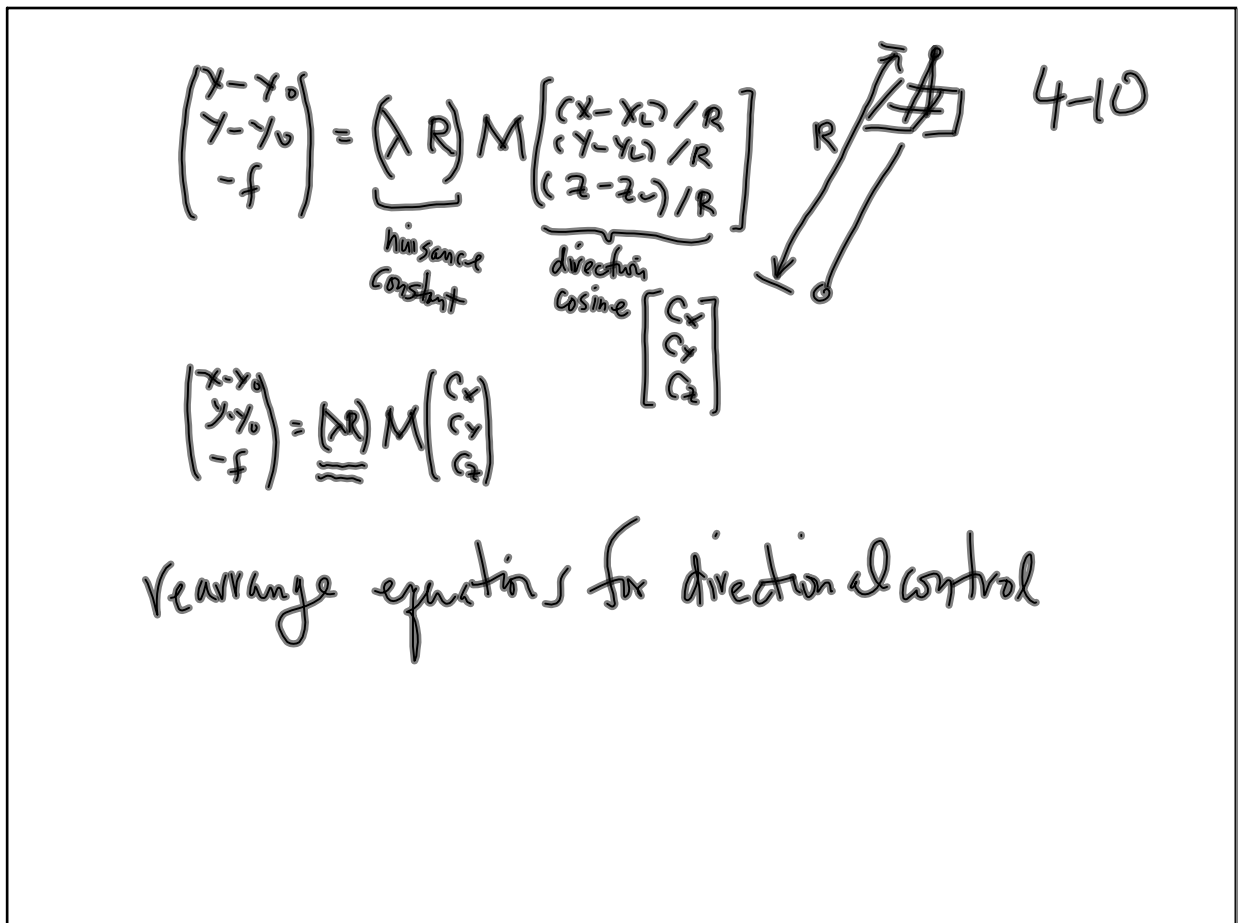 4-10
(x-x₀
y-y₀
-f) = (λ R) M [(X-X_L)/R
(Y-Y_L)/R
(Z-Z_L)/R]
R
nuisance
constant
direction
cosine [C_x
C_y
C_z]
(x-x₀
y-y₀
-f) = (λR) M (C_x
C_y
C_z)
rearrange equations for directional control